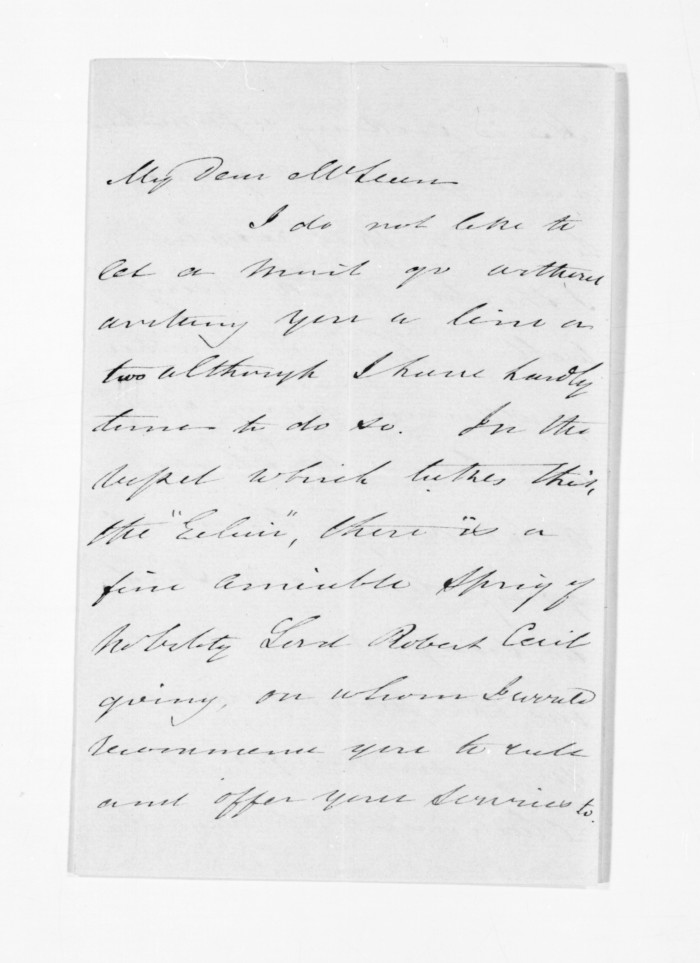 My Dear McLean
I do not like to
let a Mail go without
writing you a line or
two although I have hardly
time to do so. In the
vessel which takes this,
the "Eclair", there is a
fine amiable sprig of
nobility Lord Robert Cecil
going, on whom I would
recommend you to call
and offer your services to.